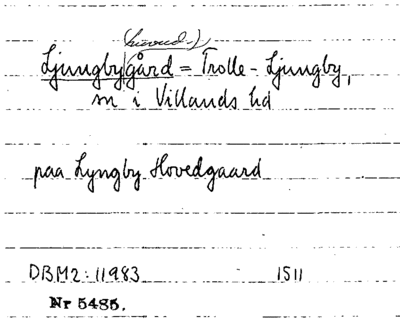 (huvud-)
Ljungby|gård = Trolle-Ljungby,
sn i Villands hd
paa Lyngby Hovedgaard
DBM2:11983 1511
Nr 5485.